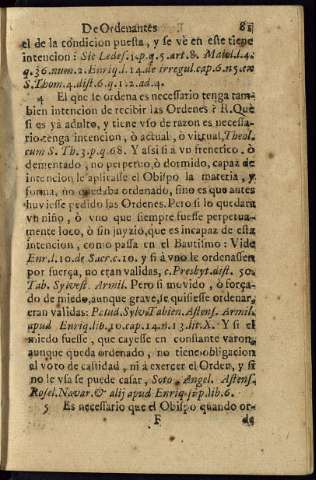 De Ordenantes 81
el de la condicion puesta, y se vè en este tiene
intencion: Sic Ledes. 1.p.q.5.art.8. Matol.l.4.
q.36.num.2. Enriq.l.14.de irregul.cap.6.n.5.en
S.Thom.4.dist.6.q.1.2.ad.4.
4 El que se ordena es necessario tenga tam-
bien intencion de recibir las Ordenes? R. Que
si es yà adulto, y tiene vso de razon es necessa-
rio tenga intencion, ò actual, ò virtual, Theol.
cum S. Th. 3. p. q. 68. Y assi si à vn frenetico, ò
dementado, no perpetuo, ò dormido, capaz de
intencion, le aplicasse el Obispo la materia, y
forma, no quedaba ordenado, sino es que antes
huviesse pedido las Ordenes. Pero si lo quedara
vn niño, ò vno que siempre fuesse perpetua-
mente loco, ò sin juyzio, que es incapaz de esta
intencion, como passa en el Bautismo: Vide
Enr.l.10.de Sacr.c.10. y si à vno le ordenassen
por fuerça, no eran validas, c. Presbyt. dist. 50.
Tab. Sylvest. Armil. Pero si movido, ò força-
do de miedo, aunque grave, se quisiesse ordenar,
eran validas: Palud. Sylv. Tabien. Astens. Armil.
apud Enriq.lib.10.cap.14.n.13.lit.X. Y si el
miedo fuesse, que cayesse en constante varon,
aunque queda ordenado, no tiene obligacion
al voto de castidad, ni à exercer el Orden, y si
no le vsa se puede casar, Soto, Angel. Astens.
Rosel. Navar. & alij apud Enriq. sup. lib. 6.
5 Es necessario que el Obispo quando or-
F de